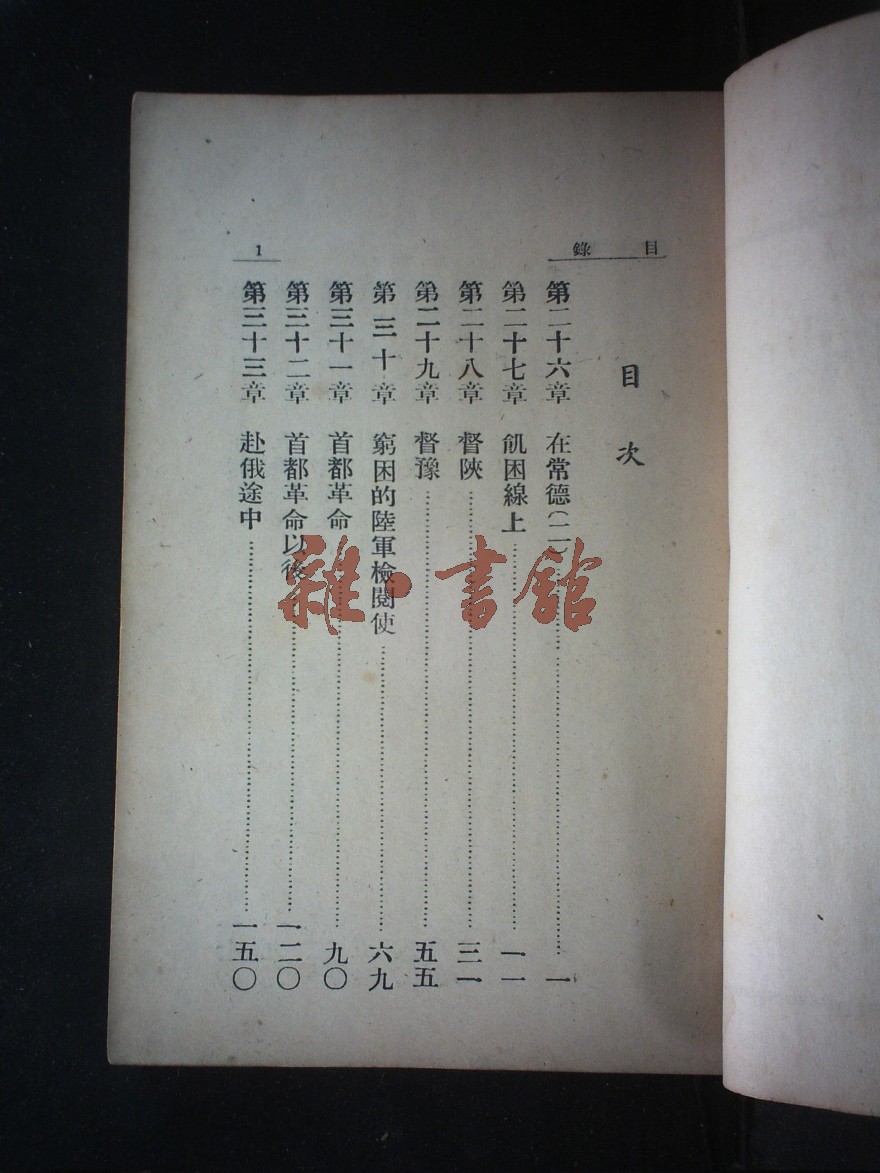 目錄
1
目次
第二十六章 在常德(二)……一
第二十七章 飢困線上……一一
第二十八章 督陝……三一
第二十九章 督豫……五五
第三十章 窮困的陸軍檢閱使……六九
第三十一章 首都革命……九〇
第三十二章 首都革命以後……一二〇
第三十三章 赴俄途中……一五〇
雜·書館